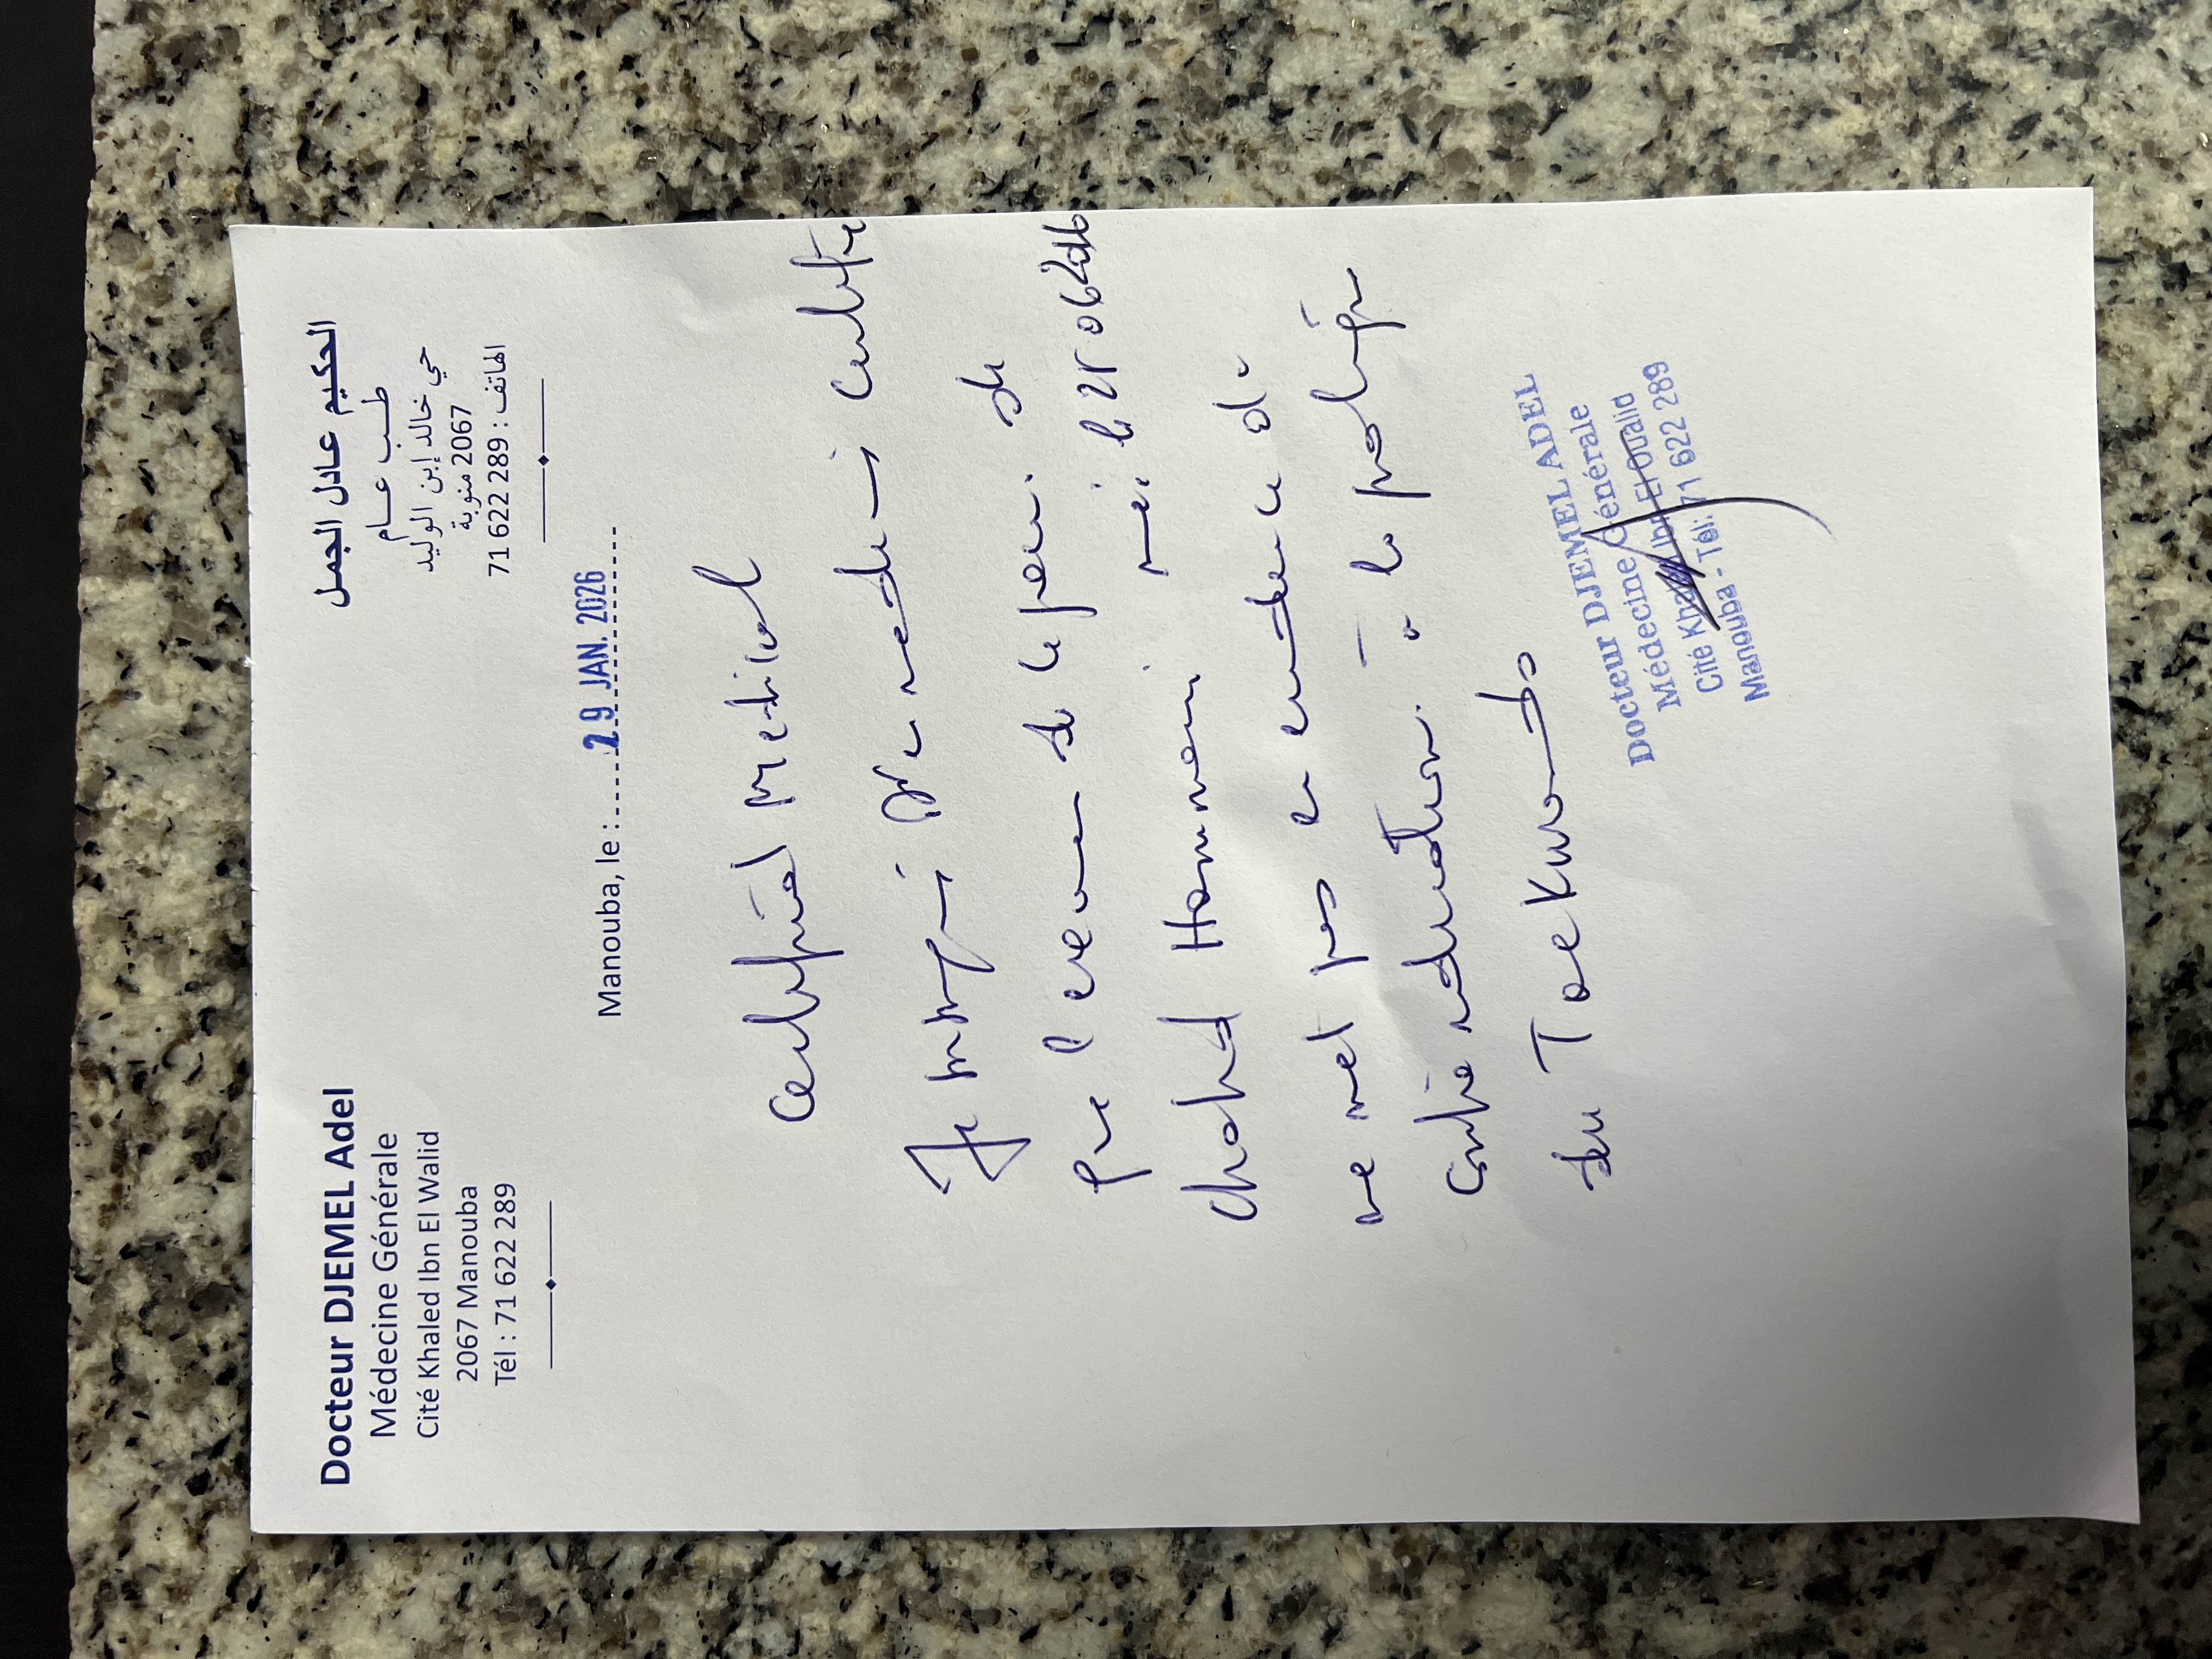 Docteur DJEMEL Adel
Médecine Générale
Cité Khaled Ibn El Walid
2067 Manouba
Tél : 71 622 289
الحكيم عادل الجمل
طب عام
حي خالد إبن الوليد
2067 منوبة
الهاتف : 71 622 289
Manouba, le : 29 JAN. 2026
Certificat Medical
Je soussigné Dr en medecine certifie
que l'examen de
Hammami né le
ne met pas en evidence de
contre indication à la pratique
du Taekwondo
Docteur DJEMEL ADEL
Médecine Générale
Cité Khaled Ibn El Oualid
Manouba - Tél: 71 622 289